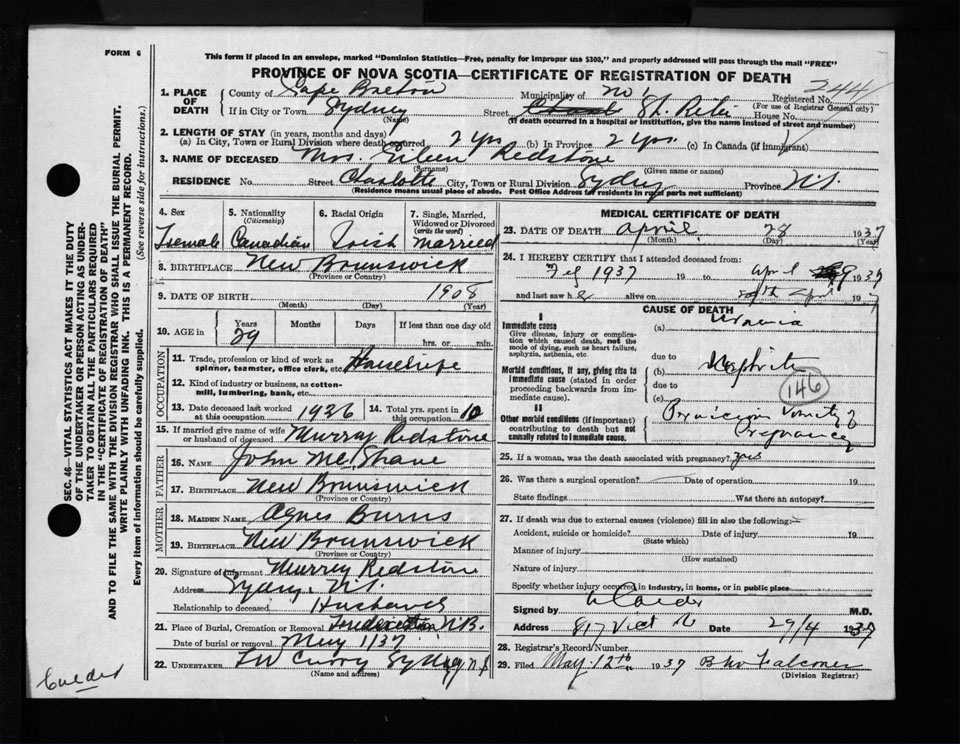 FORM 6
This form if placed in an envelope, marked "Dominion Statistics—Free, penalty for improper use $300," and properly addressed will pass through the mail "FREE"
PROVINCE OF NOVA SCOTIA—CERTIFICATE OF REGISTRATION OF DEATH
1. PLACE OF DEATH County of Cape Breton Municipality of No 1 Registered No. 244
(For use of Registrar General only)
If in City or Town Sydney Street St. Rita House No.
(Name)
(If death occurred in a hospital or institution, give the name instead of street and number)
2. LENGTH OF STAY (in years, months and days)
(a) In City, Town or Rural Division where death occurred 2 yrs. (b) In Province 2 yrs. (c) In Canada (if immigrant)
3. NAME OF DECEASED Mrs. Eileen Redstone
(Surname) (Given name or names)
RESIDENCE No. Street Charlotte City, Town or Rural Division Sydney Province N.S.
(Residence means usual place of abode. Post Office Address for residents in rural parts not sufficient)
4. Sex Female
5. Nationality (Citizenship) Canadian
6. Racial Origin Irish
7. Single, Married, Widowed or Divorced (write the word) Married
8. BIRTHPLACE New Brunswick
(Province or Country)
9. DATE OF BIRTH 1908
(Month) (Day) (Year)
10. AGE in Years Months Days If less than one day old
29 hrs. or min.
OCCUPATION
11. Trade, profession or kind of work as spinner, teamster, office clerk, etc. Housewife
12. Kind of industry or business, as cotton-mill, lumbering, bank, etc.
13. Date deceased last worked at this occupation 1936 14. Total yrs. spent in this occupation 10
15. If married give name of wife or husband of deceased Murray Redstone
FATHER
16. NAME John McShane
17. BIRTHPLACE New Brunswick
(Province or Country)
MOTHER
18. MAIDEN NAME Agnes Burns
19. BIRTHPLACE New Brunswick
(Province or Country)
20. Signature of informant Murrey Redstone
Address Sydney, N.S.
Relationship to deceased Husband
21. Place of Burial, Cremation or Removal Fredericton N.B.
Date of burial or removal May 1/37
22. UNDERTAKER Curry Sydney N.S.
(Name and address)
MEDICAL CERTIFICATE OF DEATH
23. DATE OF DEATH April 28 1937
(Month) (Day) (Year)
24. I HEREBY CERTIFY that I attended deceased from:
Feb 1937 19 to April 1937
and last saw h alive on April 1937
CAUSE OF DEATH
I
Immediate cause
Give disease, injury or complication which caused death, not the mode of dying, such as heart failure, asphyxia, asthenia, etc.
(a) Uremia
due to
Morbid conditions, if any, giving rise to immediate cause (stated in order proceeding backwards from immediate cause).
(b) Nephritis
due to
(c)
146
II
Other morbid conditions (if important) contributing to death but not causally related to immediate cause.
Pernicious Vomiting of Pregnancy
25. If a woman, was the death associated with pregnancy? yes
26. Was there a surgical operation? Date of operation 19
State findings Was there an autopsy?
27. If death was due to external causes (violence) fill in also the following:—
Accident, suicide or homicide? Date of injury 19
(State which)
Manner of injury
(How sustained)
Nature of injury
Specify whether injury occurred in industry, in home, or in public place
Signed by Calder M.D.
Address 817 Vict Date 29/4 1937
28. Registrar's Record Number
29. Filed May 12th 1937 Falconer
(Division Registrar)
SEC. 46—VITAL STATISTICS ACT MAKES IT THE DUTY
OF THE UNDERTAKER OR PERSON ACTING AS UNDER-
TAKER TO OBTAIN ALL THE PARTICULARS REQUIRED
IN THE "CERTIFICATE OF REGISTRATION OF DEATH"
AND TO FILE THE SAME WITH THE DIVISION REGISTRAR WHO SHALL ISSUE THE BURIAL PERMIT.
WRITE PLAINLY WITH UNFADING INK. THIS IS A PERMANENT RECORD.
Every item of information should be carefully supplied. (See reverse side for instructions.)
Calder